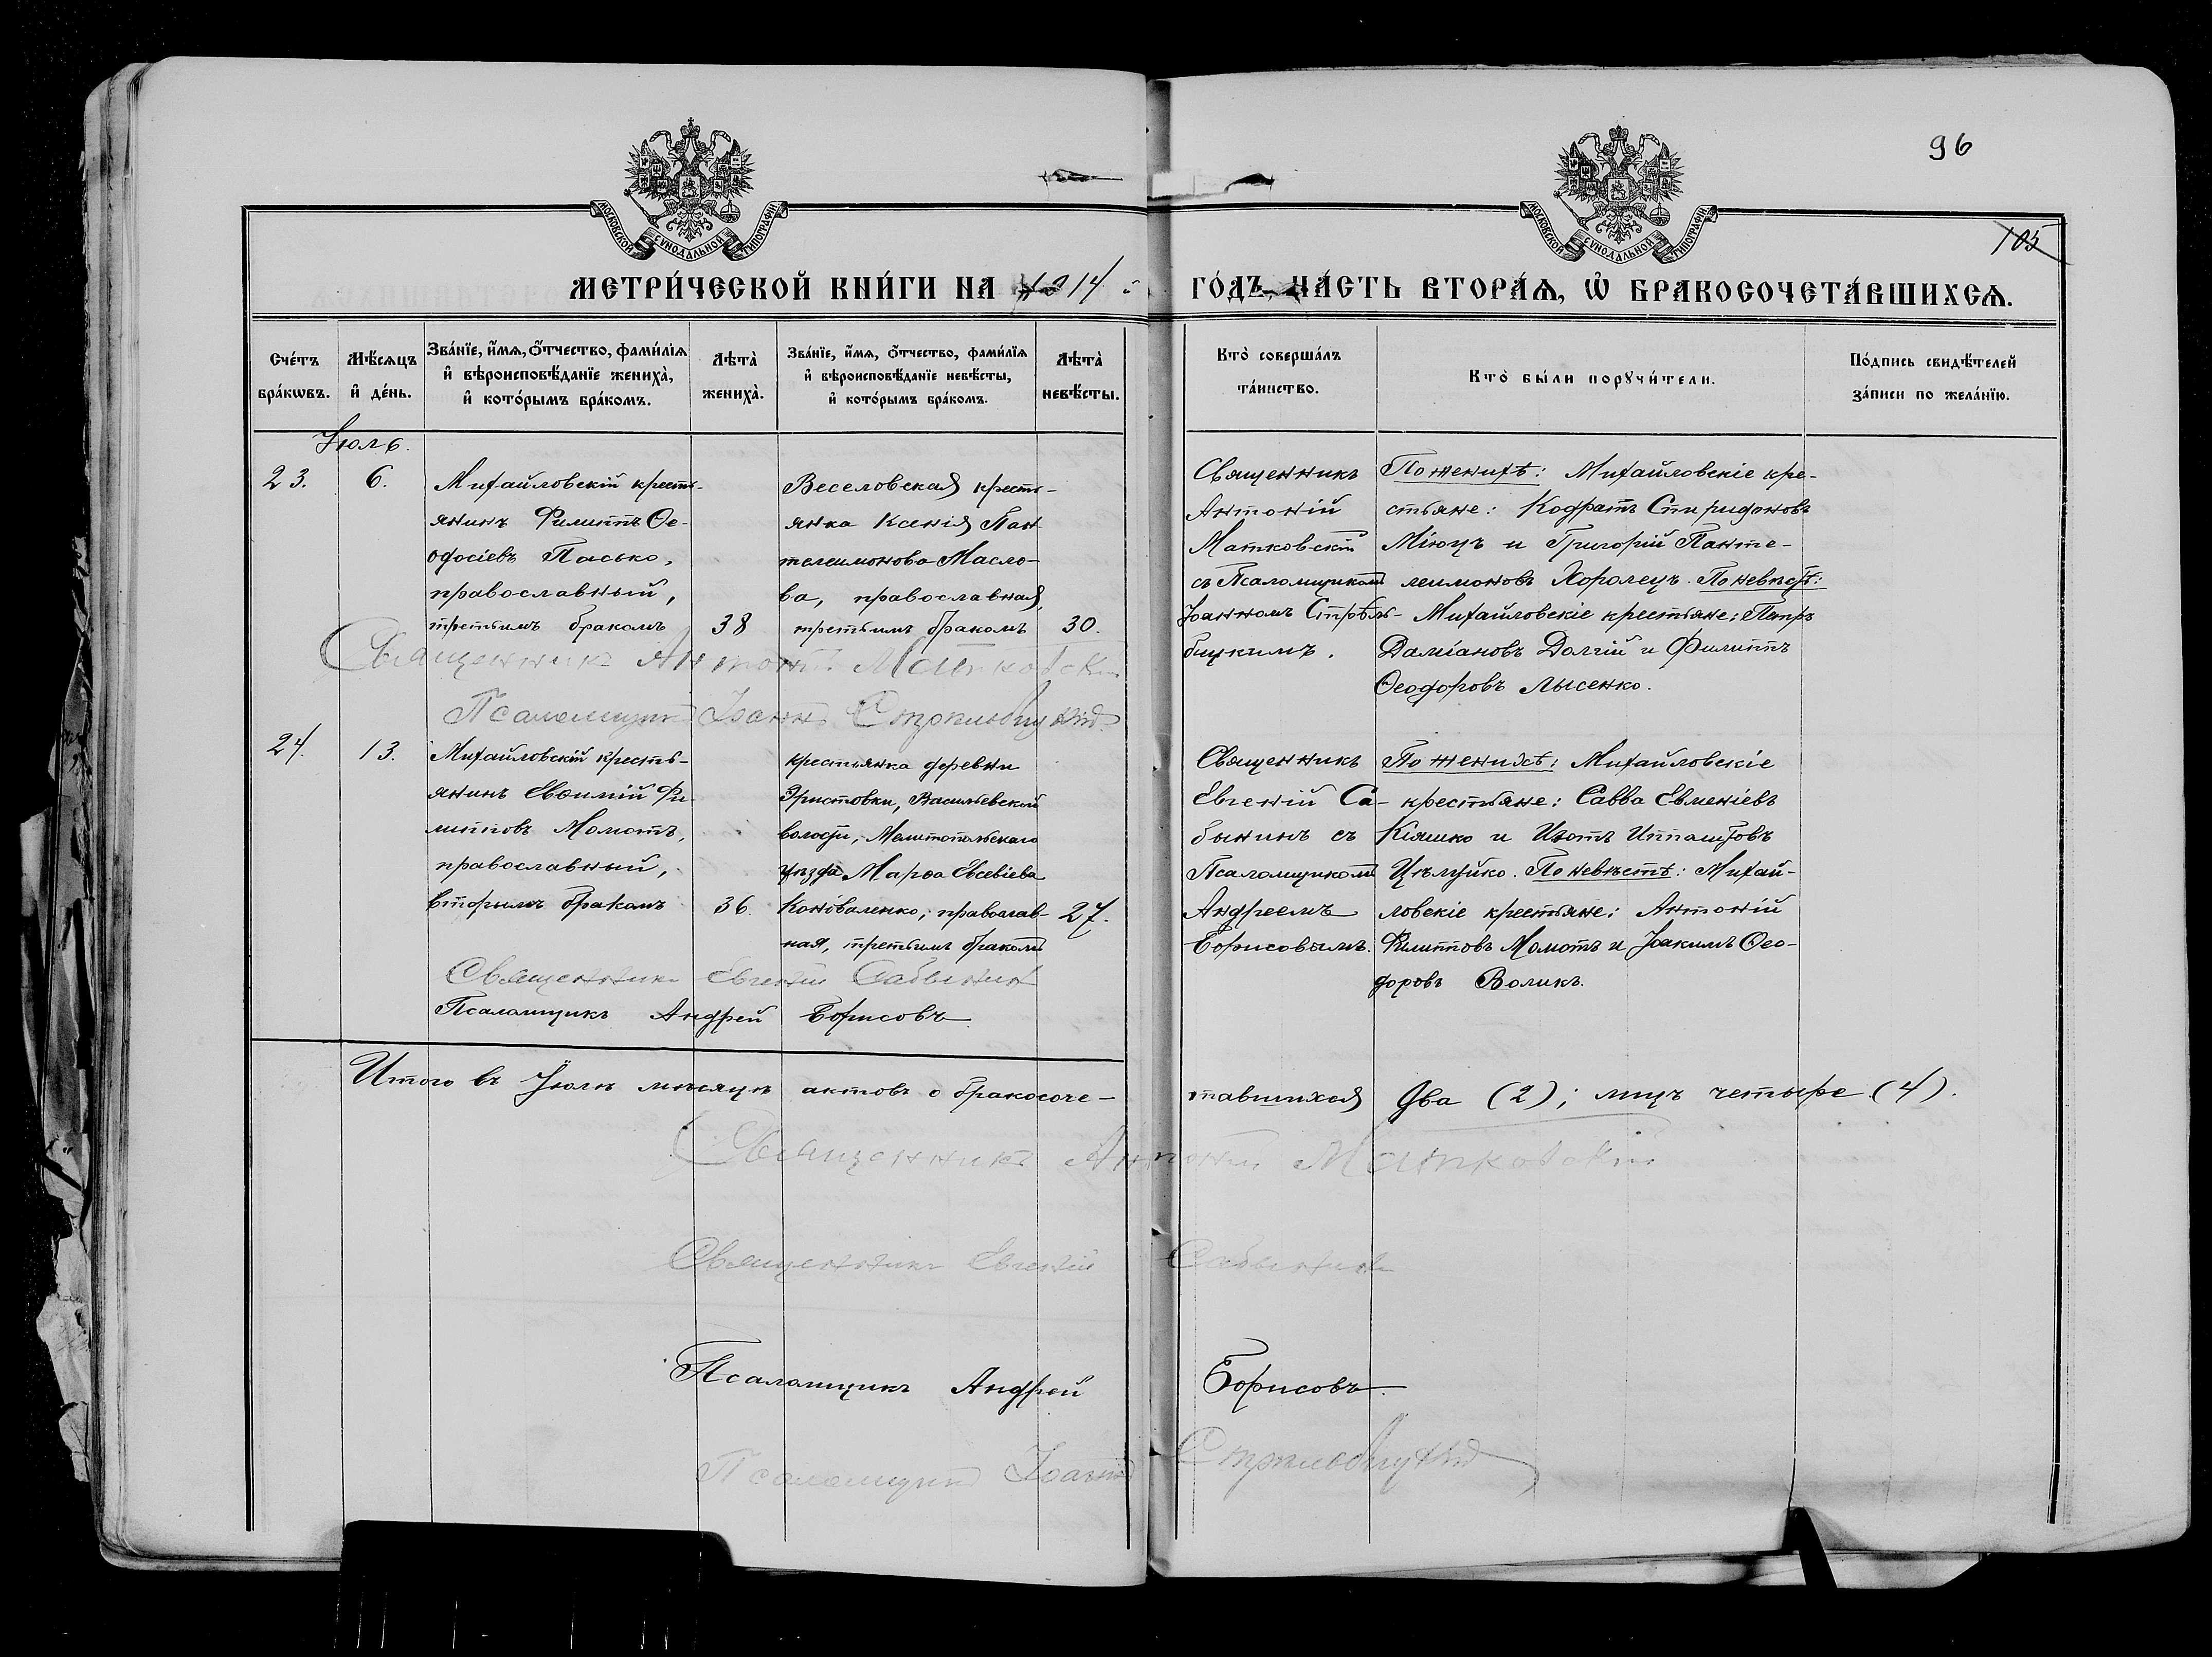 96
105
МОСКОВСКОЙ СѴНОДАЛЬНОЙ ТИПОГРАФІИ
МОСКОВСКОЙ СѴНОДАЛЬНОЙ ТИПОГРАФІИ
МЕТРИ́ЧЕСКОЙ КНИ́ГИ НА 1914 ГО́ДЪ, ЧА́СТЬ ВТОРА́Ѧ, Ѡ҆ БРАКОСОЧЕТА́ВШИХСѦ.
Сче́тъ бра́кѡвъ.
Мѣ́сѧцъ и҆ де́нь.
Зва́нїе, и҆́мѧ, ѻ҆́тчество, фами́лїѧ и҆ вѣроисповѣ́данїе жениха̀, и҆ кото́рымъ бра́комъ.
Лѣта̀ жениха̀.
Зва́нїе, и҆́мѧ, ѻ҆́тчество, фами́лїѧ и҆ вѣроисповѣ́данїе невѣ́сты, и҆ кото́рымъ бра́комъ.
Лѣта̀ невѣ́сты.
Кто̀ соверша́лъ та́инство.
Кто̀ бы́ли порꙋчи́тели.
По́дпись свидѣ́телей за́писи по жела́нїю.
Іюль.
23.
6.
Михайловскій кресть-
янинъ Филиппъ Ѳе-
одосіевъ Пасько,
православный,
третьимъ бракомъ
38
Веселовская кресть-
янка Ксенія Пан-
телеимонова Масло-
ва, православная,
третьимъ бракомъ
30.
Священникъ
Антоній
Матковскій
съ Псаломщикомъ
Іоанномъ Стрѣль-
бицкимъ.
По женихѣ: Михайловскіе кре-
стьяне: Кодратъ Спиридоновъ
Міюцъ и Григорій Панте-
леимоновъ Хоролецъ. По невѣстѣ:
Михайловскіе крестьяне: Петръ
Даміановъ Долгій и Филиппъ
Ѳеодоровъ Лысенко.
Священникъ Антоній Матковскій
Псаломщикъ Іоаннъ Стрѣльбицкій
24.
13.
Михайловскій кресть-
янинъ Евѳимій Фи-
липповъ Момотъ,
православный,
вторымъ бракомъ
36.
крестьянка деревни
Эристовки, Васильевской
волости, Мелитопольскаго
уѣзда Марѳа Евсевіева
Коноваленко, православ-
ная, третьимъ бракомъ
27.
Священникъ
Евгеній Са-
бынинъ съ
Псаломщикомъ
Андреемъ
Борисовымъ.
По женихѣ: Михайловскіе
крестьяне: Савва Евменіевъ
Кіяшко и Изотъ Ипполитовъ
Цѣлуйко. По невѣстѣ: Михай-
ловскіе крестьяне: Антоній
Филипповъ Момотъ и Іоакимъ Ѳео-
доровъ Воликъ.
Священникъ Евгеній Сабынинъ
Псаломщикъ Андрей Борисовъ
Итого въ Іюлѣ мѣсяцѣ актовъ о бракосоче-
тавшихся два (2); лицъ четыре (4).
Священникъ Антоній Матковскій
Священникъ Евгеній Сабынинъ
Псаломщикъ Андрей Борисовъ.
Псаломщикъ Іоаннъ Стрѣльбицкій